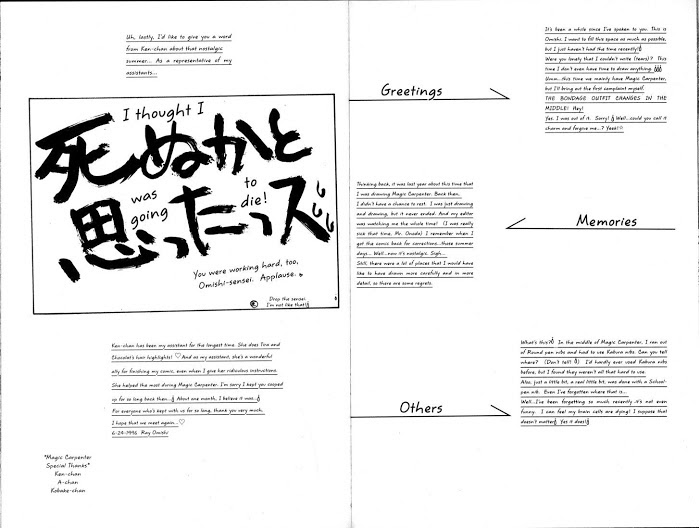 Uh, lastly, I'd like to give you a word
from Ken-chan about that nostalgic
summer... As a representative of my
assistants...
I thought I
死ぬかと
was going to die!
思ったっズ
You were working hard, too,
Omishi-sensei. Applause.
Drop the sensei.
I'm not like that!
Ken-chan has been my assistant for the longest time. She does Tira and
Chocolat's hair highlights! ♡ And as my assistant, she's a wonderful
ally for finishing my comic, even when I give her ridiculous instructions.
She helped the most during Magic Carpenter. I'm sorry I kept you cooped
up for so long back then... About one month, I believe it was...
For everyone who's kept with us for so long, thank you very much.
I hope that we meet again...♡
6-24-1996 Ray Omishi
"Magic Carpenter
Special Thanks"
Ken-chan
A-chan
Kobake-chan
Greetings
It's been a while since I've spoken to you. This is
Omishi. I want to fill this space as much as possible,
but I just haven't had the time recently!
Were you lonely that I couldn't write (tears)? This
time I don't even have time to draw anything.
Umm...this time we mainly have Magic Carpenter,
but I'll bring out the first complaint myself.
THE BONDAGE OUTFIT CHANGES IN THE
MIDDLE! Hey!
Yes. I was out of it. Sorry! Well...could you call it
charm and forgive me...? Yeah!
Memories
Thinking back, it was last year about this time that
I was drawing Magic Carpenter. Back then...
I didn't have a chance to rest. I was just drawing
and drawing, but it never ended. And my editor
was watching me the whole time! (I was really
sick that time, Mr. Onoda) I remember when I
got the comic back for corrections...those summer
days... Well...now it's nostalgic. Sigh...
Still, there were a lot of places that I would have
like to have drawn more carefully and in more
detail, so there are some regrets.
Others
What's this? In the middle of Magic Carpenter, I ran out
of Round pen nibs and had to use Kabura nibs. Can you tell
where? (Don't tell!) I'd hardly ever used Kabura nibs
before, but I found they weren't all that hard to use.
Also, just a little bit, a real little bit, was done with a School-
pen nib. Even I've forgotten where that is...
Well...I've been forgetting so much recently...it's not even
funny. I can feel my brain cells are dying! I suppose that
doesn't matter. Yes it does!